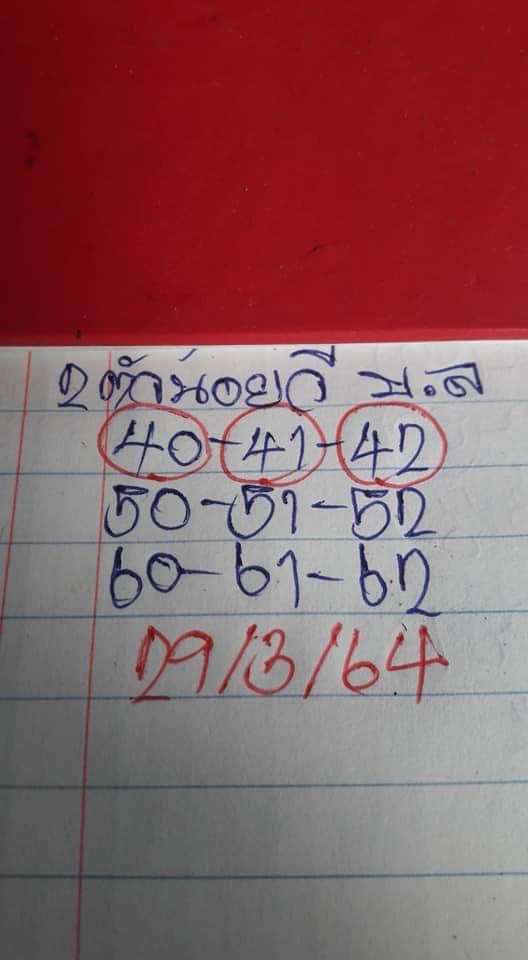 2ตัวน้อยวี บ.ล
40-41-42
50-51-52
60-61-62
29/3/64